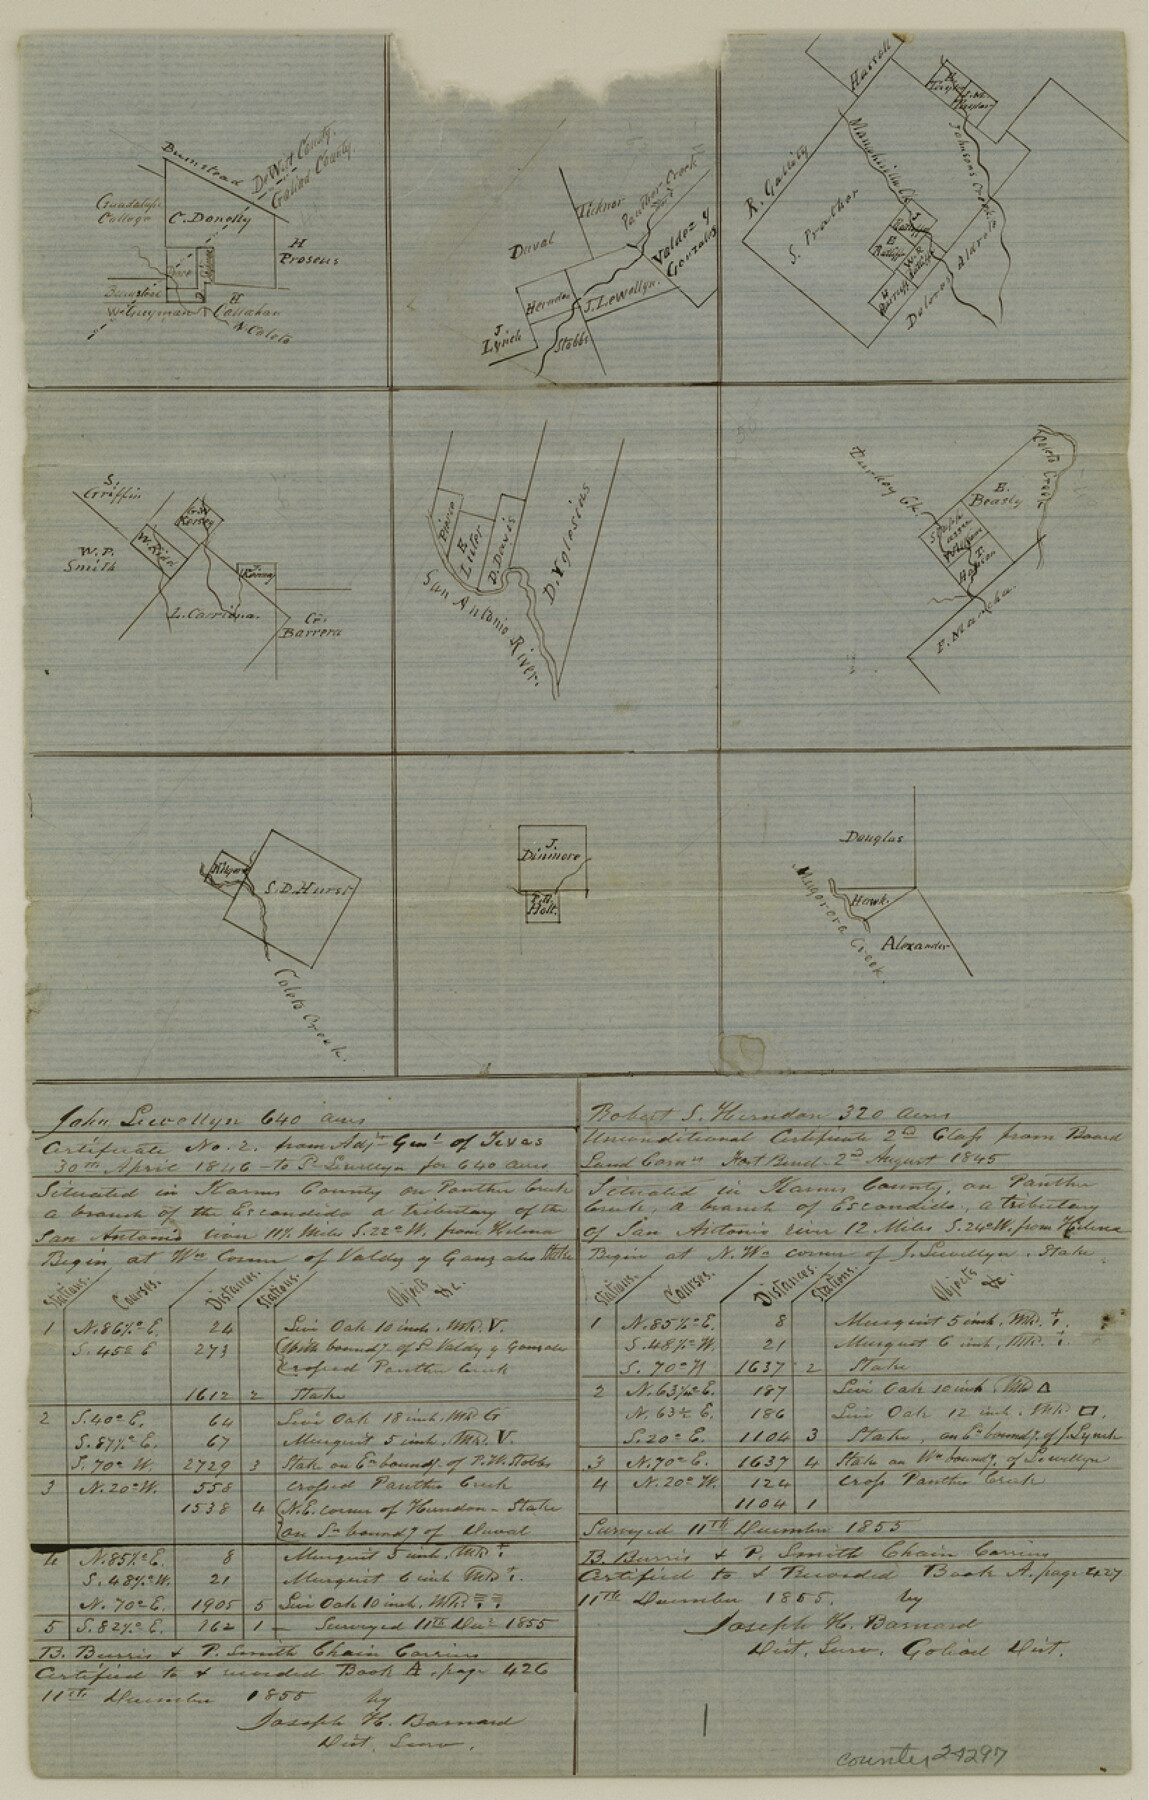 Bumstead
DeWitt County.
Goliad County.
Guadalupe
College
C. Donelly
H
Prosens
W. Guyman
H
Callahan
N. Coleto
Duval
Ticknor
Panther Creek
Valdez y
Gonzales
Herndon
J. Lewellyn.
J.
Lynch
Stobbs
Hassell
R. Gallity
S. Prather
Johnsons Creek
Dolores Aldrete
S.
Griffin
W. P.
Smith
W. Kidd
L. Carrisa.
Barrera
Pierce
E.
Lister
D. Davis
D. Yglesias
San Antonio River.
Turkey Ck.
Coleto Creek
E.
Beasly
S. D. Hurst
Coleto Creek.
J.
Dinimore
Holt.
Douglas
Hawk.
Alexander
Creek.
John Lewellyn 640 acres
Certificate No. 2. from Adjt. Genl. of Texas
30th April 1846 - to P. Lewellyn for 640 acres
Situated in Karnes County on Panther Creek
a branch of the Escondido a tributary of the
San Antonio river 11½ Miles S. 22° W. from Helena
Begin at Wn Corner of Valdz y Gonzales Stake
Stations. Courses. Distances. Stations. Objects &c.
1 N. 86½° E. 24 Live Oak 10 inch. Mkd. V.
S. 45° E 273 With boundy. of P. Valdy y Gonzales
crossed Panther Creek
1612 2 Stake
2 S. 40° E. 64 Live Oak 18 inch. Mkd
S. 87½° E. 67 Musquit 5 inch. Mkd. V.
S. 70° W. 2729 3 Stake on En boundy. of P. W. Stobbs
3 N. 20° W. 558 crossed Panther Creek
1538 4 N. E. corner of Herndon - Stake
on Sn boundy of Duval
4 N. 85½° E. 8 Musquit 5 inch. Mkd
S. 48½° W. 21 Musquit 6 inch Mkd
N. 70° E. 1905 5 Live Oak 10 inch. Mkd.
5 S. 82½° E. 762 1 - Surveyed 11th Decr 1855
B. Burris & P. Smith Chain Carriers
Certified to & recorded Book A, page 426
11th December 1855 by
Joseph H. Barnard
Dist. Surv.
Robert S. Herndon 320 acres
Unconditional Certificate 2nd Class from Board
Land Comrs Fort Bend - 2nd August 1845
Situated in Karnes County, on Panther
Creek, a branch of Escondido, a tributary
of San Antonio river 12 Miles S. 24° W. from Helena
Begin at N. Wn corner of J. Lewellyn. Stake
Stations Courses. Distances. Stations. Objects &c.
1 N. 85½° E. 8 Musquit 5 inch. Mkd.
S. 48½° W. 21 Musquit 6 inch, Mkd.
S. 70° W 1637 2 Stake
2 N. 63½° E. 187 Live Oak 10 inch Mkd Δ
N. 63½ E. 186 Live Oak 12 inch. Mkd □.
S. 20° E. 1104 3 Stake, on En boundy. of J. Lynch
3 N. 70° E. 1637 4 Stake on Wn boundy. of Lewellyn
4 N. 20° W. 124 cross Panther Creek
1104 1
Surveyed 11th December 1855
B. Burris & P. Smith Chain Carriers
Certified to & Recorded Book A. page 427
11th December 1855. by
Joseph H. Barnard
Dist. Surv. Goliad Dist.
counter 24297